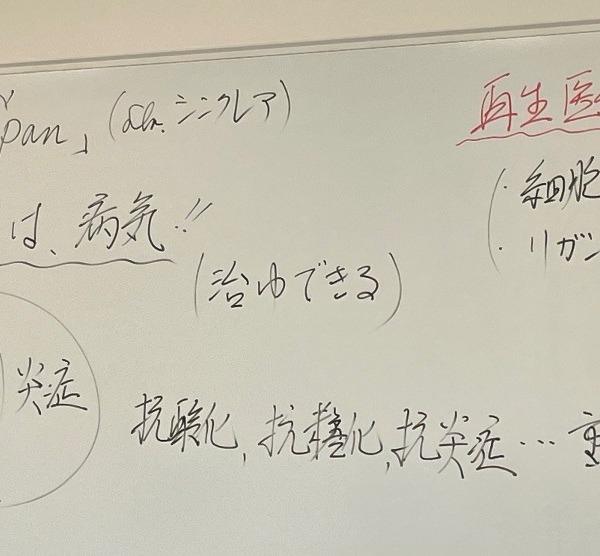 pan」(Dr. シンクレア)
再生医
は、病気!!
(・細胞
・リガン
(治ゆできる)
炎症
抗酸化, 抗糖化, 抗炎症…